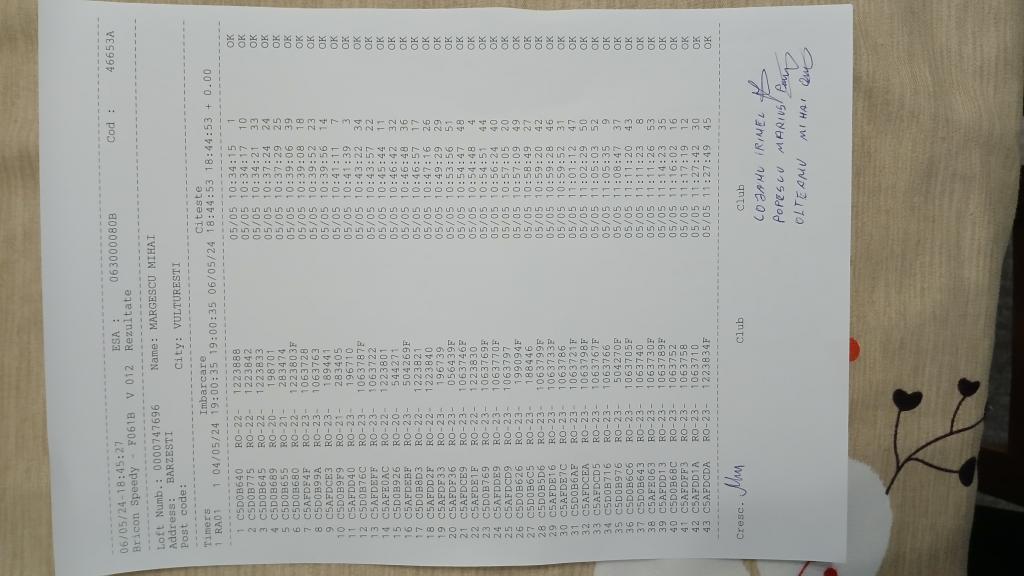 06/05/24-18:45:27 ESA : 063000080B Cod : 46653A
Bricon Speedy - F061B V 012 Rezultate
Loft Numb.: 0000747696 Name: MARGESCU MIHAI
Address: BARZESTI City: VULTURESTI
Post code:
Timers Imbarcare Citeste
1 RA01 04/05/24 19:00:35 19:00:35 06/05/24 18:44:53 18:44:53 + 0.00
1 C5D0B640 RO-22- 1223888 05/05 10:34:15 1 OK
2 C5D0B775 RO-22- 1223842 05/05 10:34:17 10 OK
3 C5D0B645 RO-22- 1223833 05/05 10:34:21 23 OK
4 C5D0B689 RO-20- 198701 05/05 10:37:24 24 OK
5 C5D0B655 RO-21- 283474 05/05 10:37:29 25 OK
6 C5D0B68D RO-22- 1223803F 05/05 10:39:06 39 OK
7 C5AFDF4F RO-23- 1063728 05/05 10:39:08 18 OK
8 C5D0B99A RO-23- 1063763 05/05 10:39:52 23 OK
9 C5AFDCE3 RO-23- 189441 05/05 10:39:56 14 OK
10 C5D0B9F9 RO-21- 283405 05/05 10:41:11 7 OK
11 C5AFDD4D RO-23- 196710 05/05 10:41:39 3 OK
12 C5D0B76C RO-23- 1063787F 05/05 10:43:22 34 OK
13 C5AFDEFF RO-23- 1063722 05/05 10:43:57 22 OK
14 C5AFE0AC RO-22- 1223801 05/05 10:45:44 11 OK
15 C5D0B926 RO-20- 544271 05/05 10:46:42 32 OK
16 C5AFDEBF RO-22- 1504269F 05/05 10:46:48 36 OK
17 C5D0B8D3 RO-22- 1223821 05/05 10:46:57 17 OK
18 C5AFDD2F RO-22- 1223840 05/05 10:47:16 26 OK
19 C5AFDF33 RO-23- 196739 05/05 10:49:29 29 OK
20 C5AFDF36 RO-23- 056439F 05/05 10:53:56 51 OK
21 C5AFDCE9 RO-23- 1063746F 05/05 10:54:47 48 OK
22 C5AFDE1F RO-22- 1223830 05/05 10:54:48 4 OK
23 C5D0B769 RO-23- 1063769F 05/05 10:54:51 44 OK
24 C5AFDDE9 RO-23- 1063770F 05/05 10:56:24 40 OK
25 C5AFDCD9 RO-23- 1063797 05/05 10:57:05 20 OK
26 C5D0B626 RO-20- 199094F 05/05 10:57:09 49 OK
27 C5D0B6C5 RO-23- 188446 05/05 10:58:49 27 OK
28 C5D0B5D6 RO-23- 1063799F 05/05 10:59:20 42 OK
29 C5AFDE16 RO-23- 1063733F 05/05 10:59:28 46 OK
30 C5AFDE7C RO-23- 1063786 05/05 10:59:52 31 OK
31 C5D0B6AF RO-23- 1063721F 05/05 11:01:12 47 OK
32 C5AFDCEA RO-23- 1063798F 05/05 11:02:29 50 OK
33 C5AFDCD5 RO-23- 1063767F 05/05 11:05:03 52 OK
34 C5D0B716 RO-23- 1063766 05/05 11:05:35 9 OK
35 C5D0B976 RO-22- 1504270F 05/05 11:08:47 37 OK
36 C5D0B6C6 RO-23- 1063705F 05/05 11:11:20 43 OK
37 C5D0B643 RO-23- 1063740 05/05 11:11:23 8 OK
38 C5AFE063 RO-23- 1063730F 05/05 11:11:26 53 OK
39 C5AFDD13 RO-23- 1063789F 05/05 11:14:23 35 OK
40 C5D0B68C RO-23- 1063752 05/05 11:16:02 16 OK
41 C5AFDFF3 RO-23- 1063758 05/05 11:17:19 12 OK
42 C5AFDD1A RO-23- 1063710 05/05 11:27:42 30 OK
43 C5AFDCDA RO-22- 1223834F 05/05 11:27:49 45 OK
Cresc. Club Club
COJANU IRINEL
POPESCU MARIUS
OLTEANU MIHAI